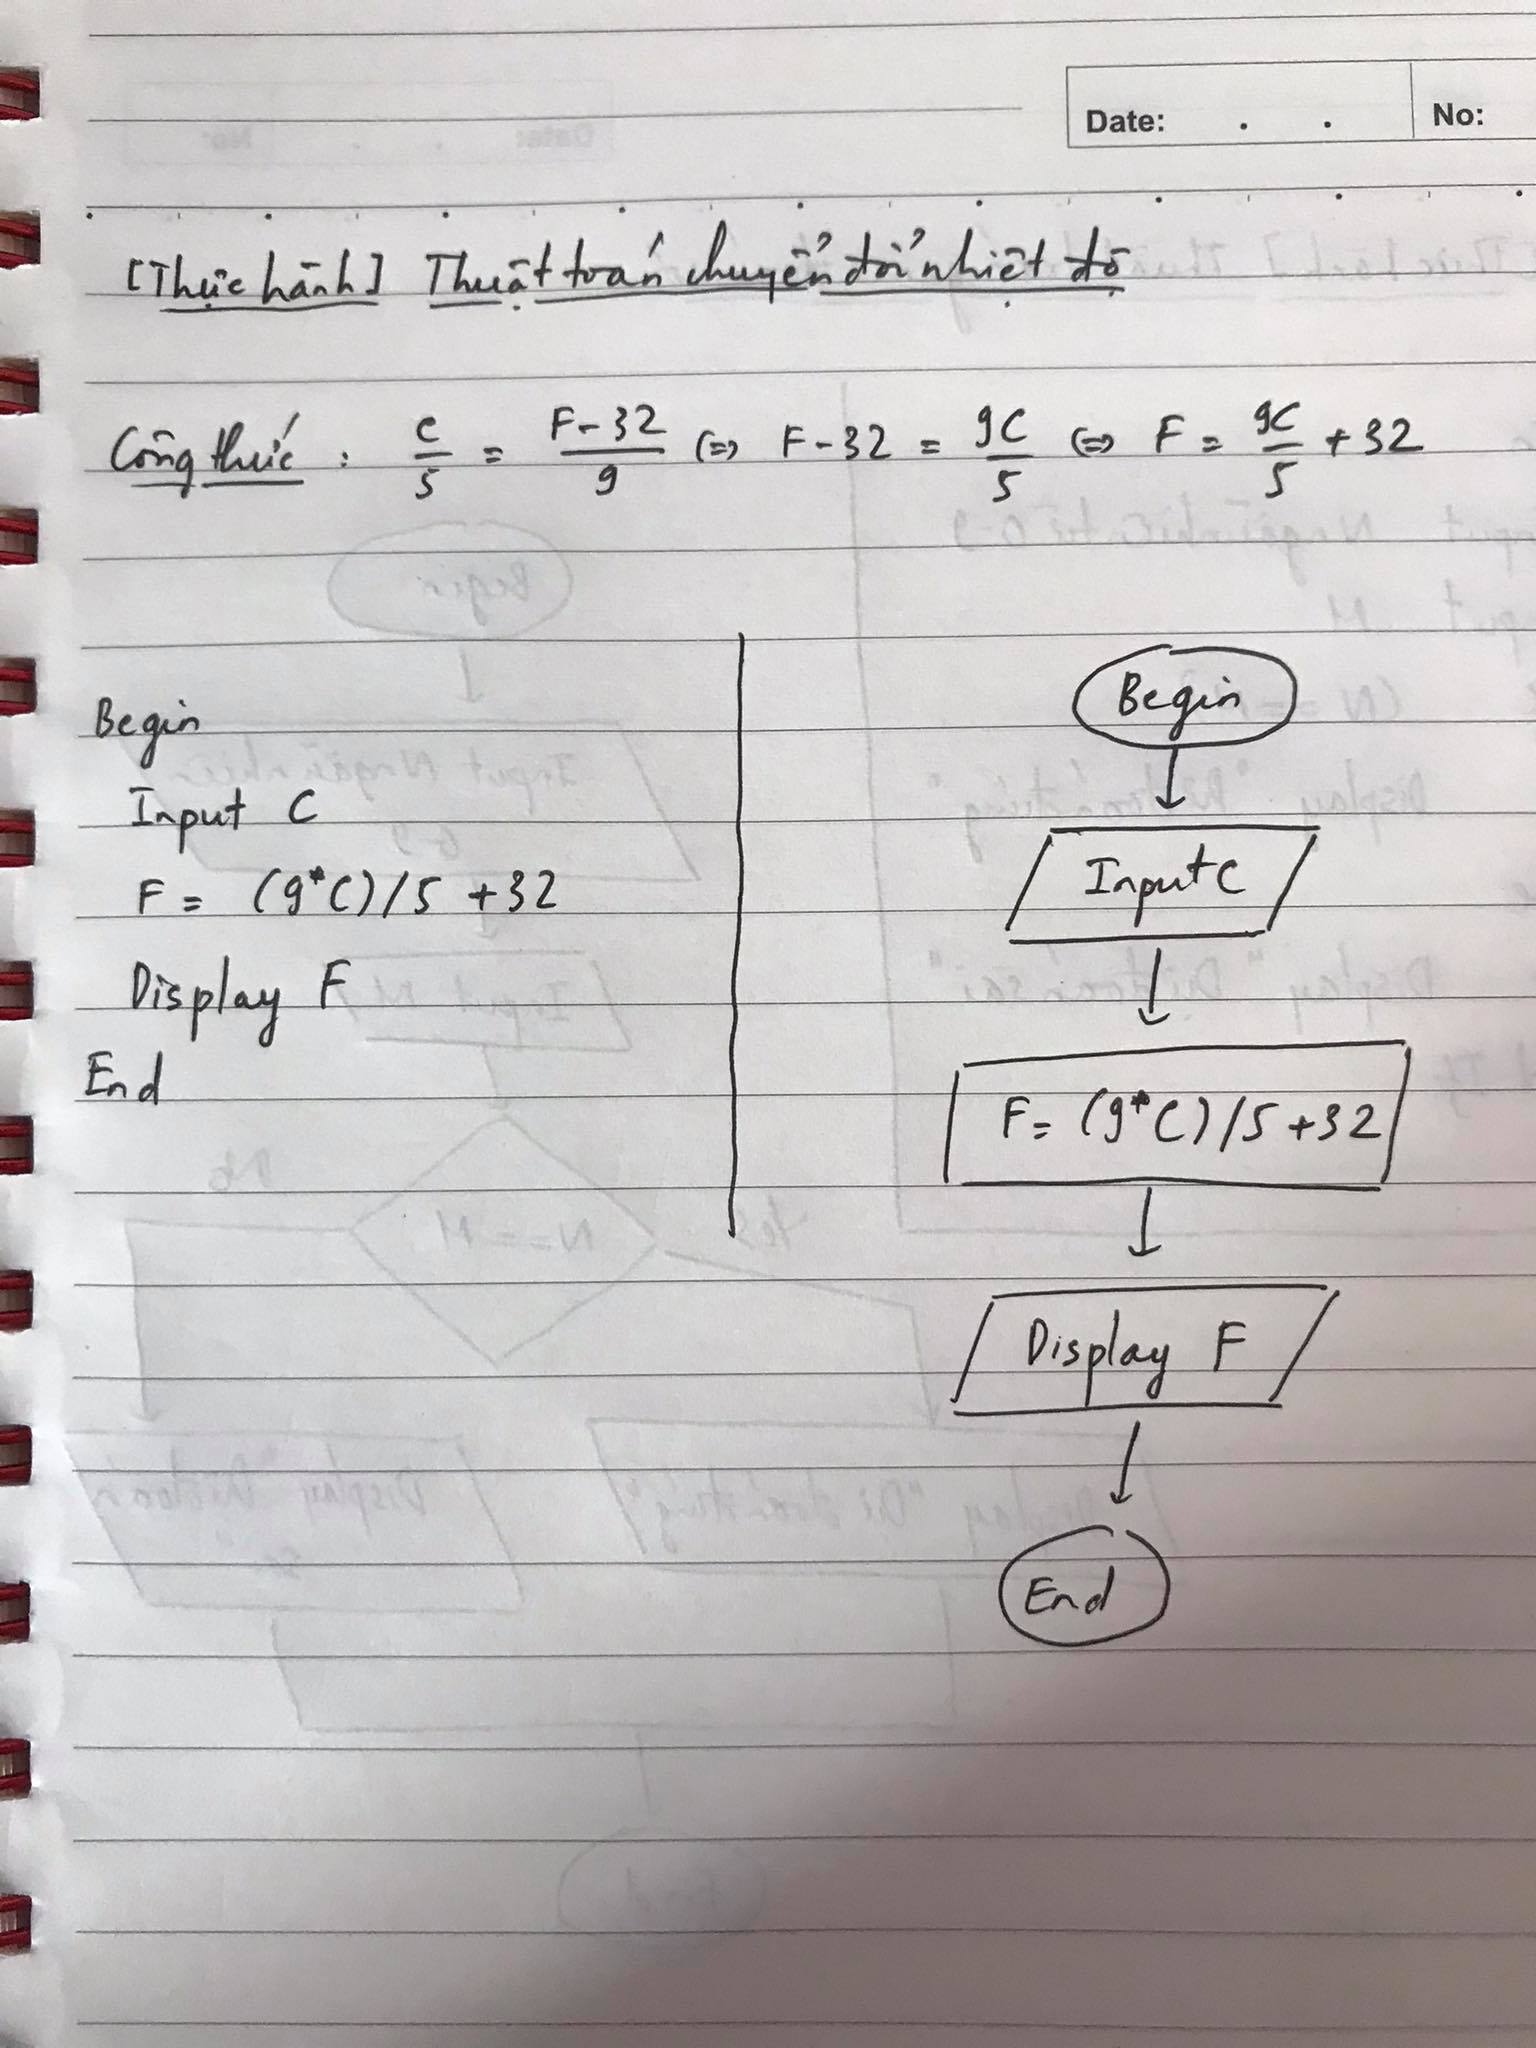 Date: . . No:
[Thực hành] Thuật toán chuyển đổi nhiệt độ
Công thức : C/5 = F-32/9 (=) F-32 = 9C/5 (=) F = 9C/5 + 32
Begin
Input C
F = (9*C)/5 +32
Display F
End
Begin
Input C
F= (9*C)/5+32
Display F
End